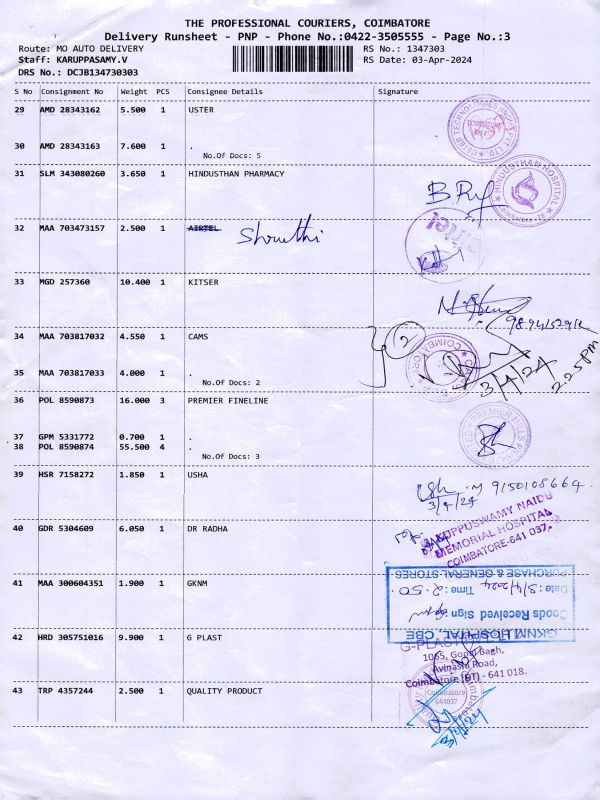 THE PROFESSIONAL COURIERS, COIMBATORE
Delivery Runsheet - PNP - Phone No.:0422-3505555 - Page No.:3
Route: MO AUTO DELIVERY RS No.: 1347303
Staff: KARUPPASAMY.V RS Date: 03-Apr-2024
DRS No.: DCJB134730303
S No Consignment No Weight PCS Consignee Details Signature
29 AMD 28343162 5.500 1 USTER
30 AMD 28343163 7.600 1 .
No.Of Docs: 5
31 SLM 343080260 3.650 1 HINDUSTHAN PHARMACY
HINDUSTHAN HOSPITAL
32 MAA 703473157 2.500 1 AIRTEL Shruthi
33 MGD 257360 10.400 1 KITSER
34 MAA 703817032 4.550 1 CAMS
2
35 MAA 703817033 4.000 1 .
No.Of Docs: 2
3/4/24
2.25 PM
36 POL 8590873 16.000 3 PREMIER FINELINE
37 GPM 5331772 0.700 1 .
38 POL 8590874 55.500 4 .
No.Of Docs: 3
39 HSR 7158272 1.850 1 USHA
9150108664
3/4/24
40 GDR 5304609 6.050 1 DR RADHA
KUPPUSWAMY NAIDU
MEMORIAL HOSPITAL
COIMBATORE-641 037.
41 MAA 300604351 1.900 1 GKNM
GKNM HOSPITAL, CBE
Goods Received Sign
Date: 3/4/2024 Time: 2.50
PURCHASE & GENERAL STORES
42 HRD 305751016 9.900 1 G PLAST
1065, Gopal Bagh,
Avinashi Road,
Coimbatore (DT) - 641 018.
43 TRP 4357244 2.500 1 QUALITY PRODUCT
Coimbatore
641037